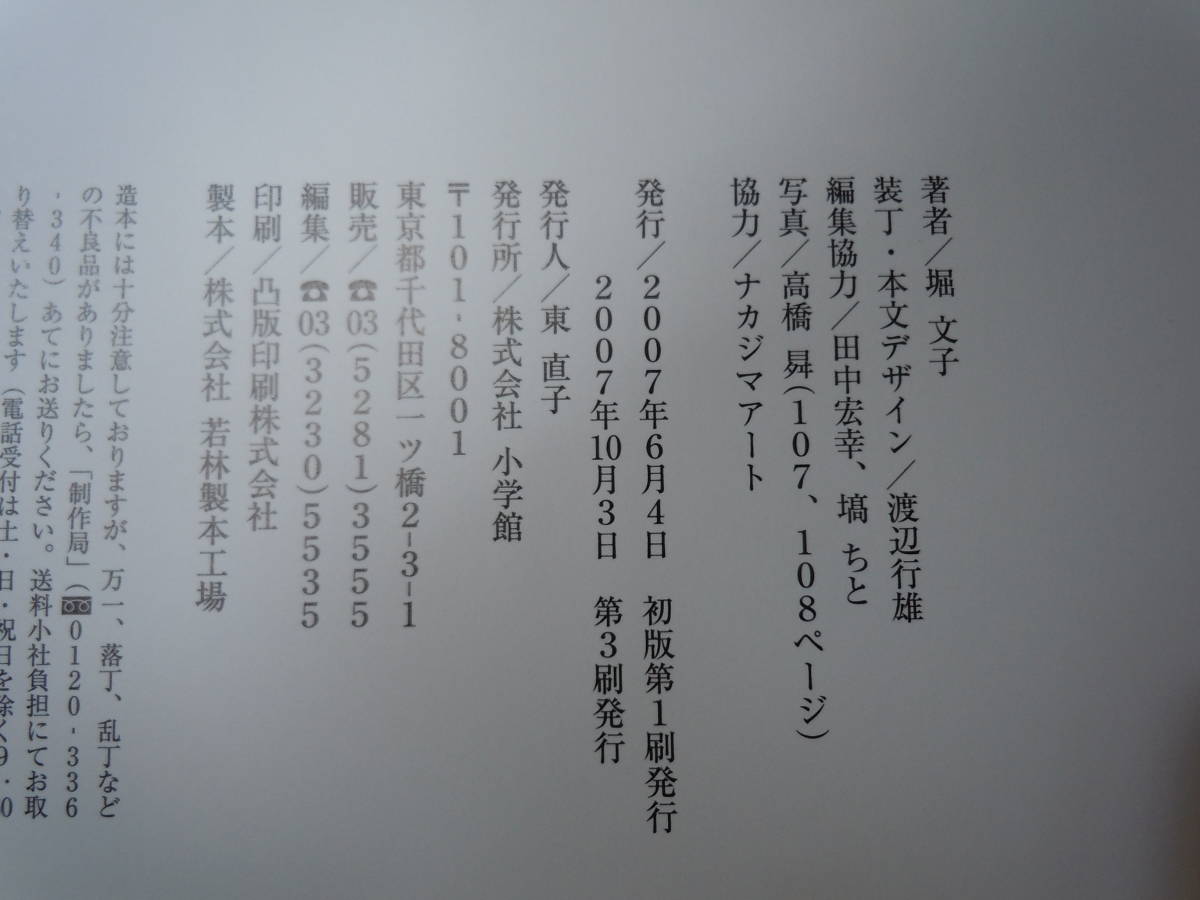 著者/堀 文子
装丁・本文デザイン/渡辺行雄
編集協力/田中宏幸、塙 ちと
写真/高橋 曻(107、108ページ)
協力/ナカジマアート
発行/2007年6月4日 初版第1刷発行
2007年10月3日 第3刷発行
発行人/東 直子
発行所/株式会社 小学館
〒101-8001
東京都千代田区一ツ橋2-3-1
販売/☎03(5281)3555
編集/☎03(3230)5535
印刷/凸版印刷株式会社
製本/株式会社 若林製本工場
造本には十分注意しておりますが、万一、落丁、乱丁など
の不良品がありましたら、「制作局」(0120-336
-340)あてにお送りください。送料小社負担にてお取
り替えいたします(電話受付は土・日・祝日を除く9